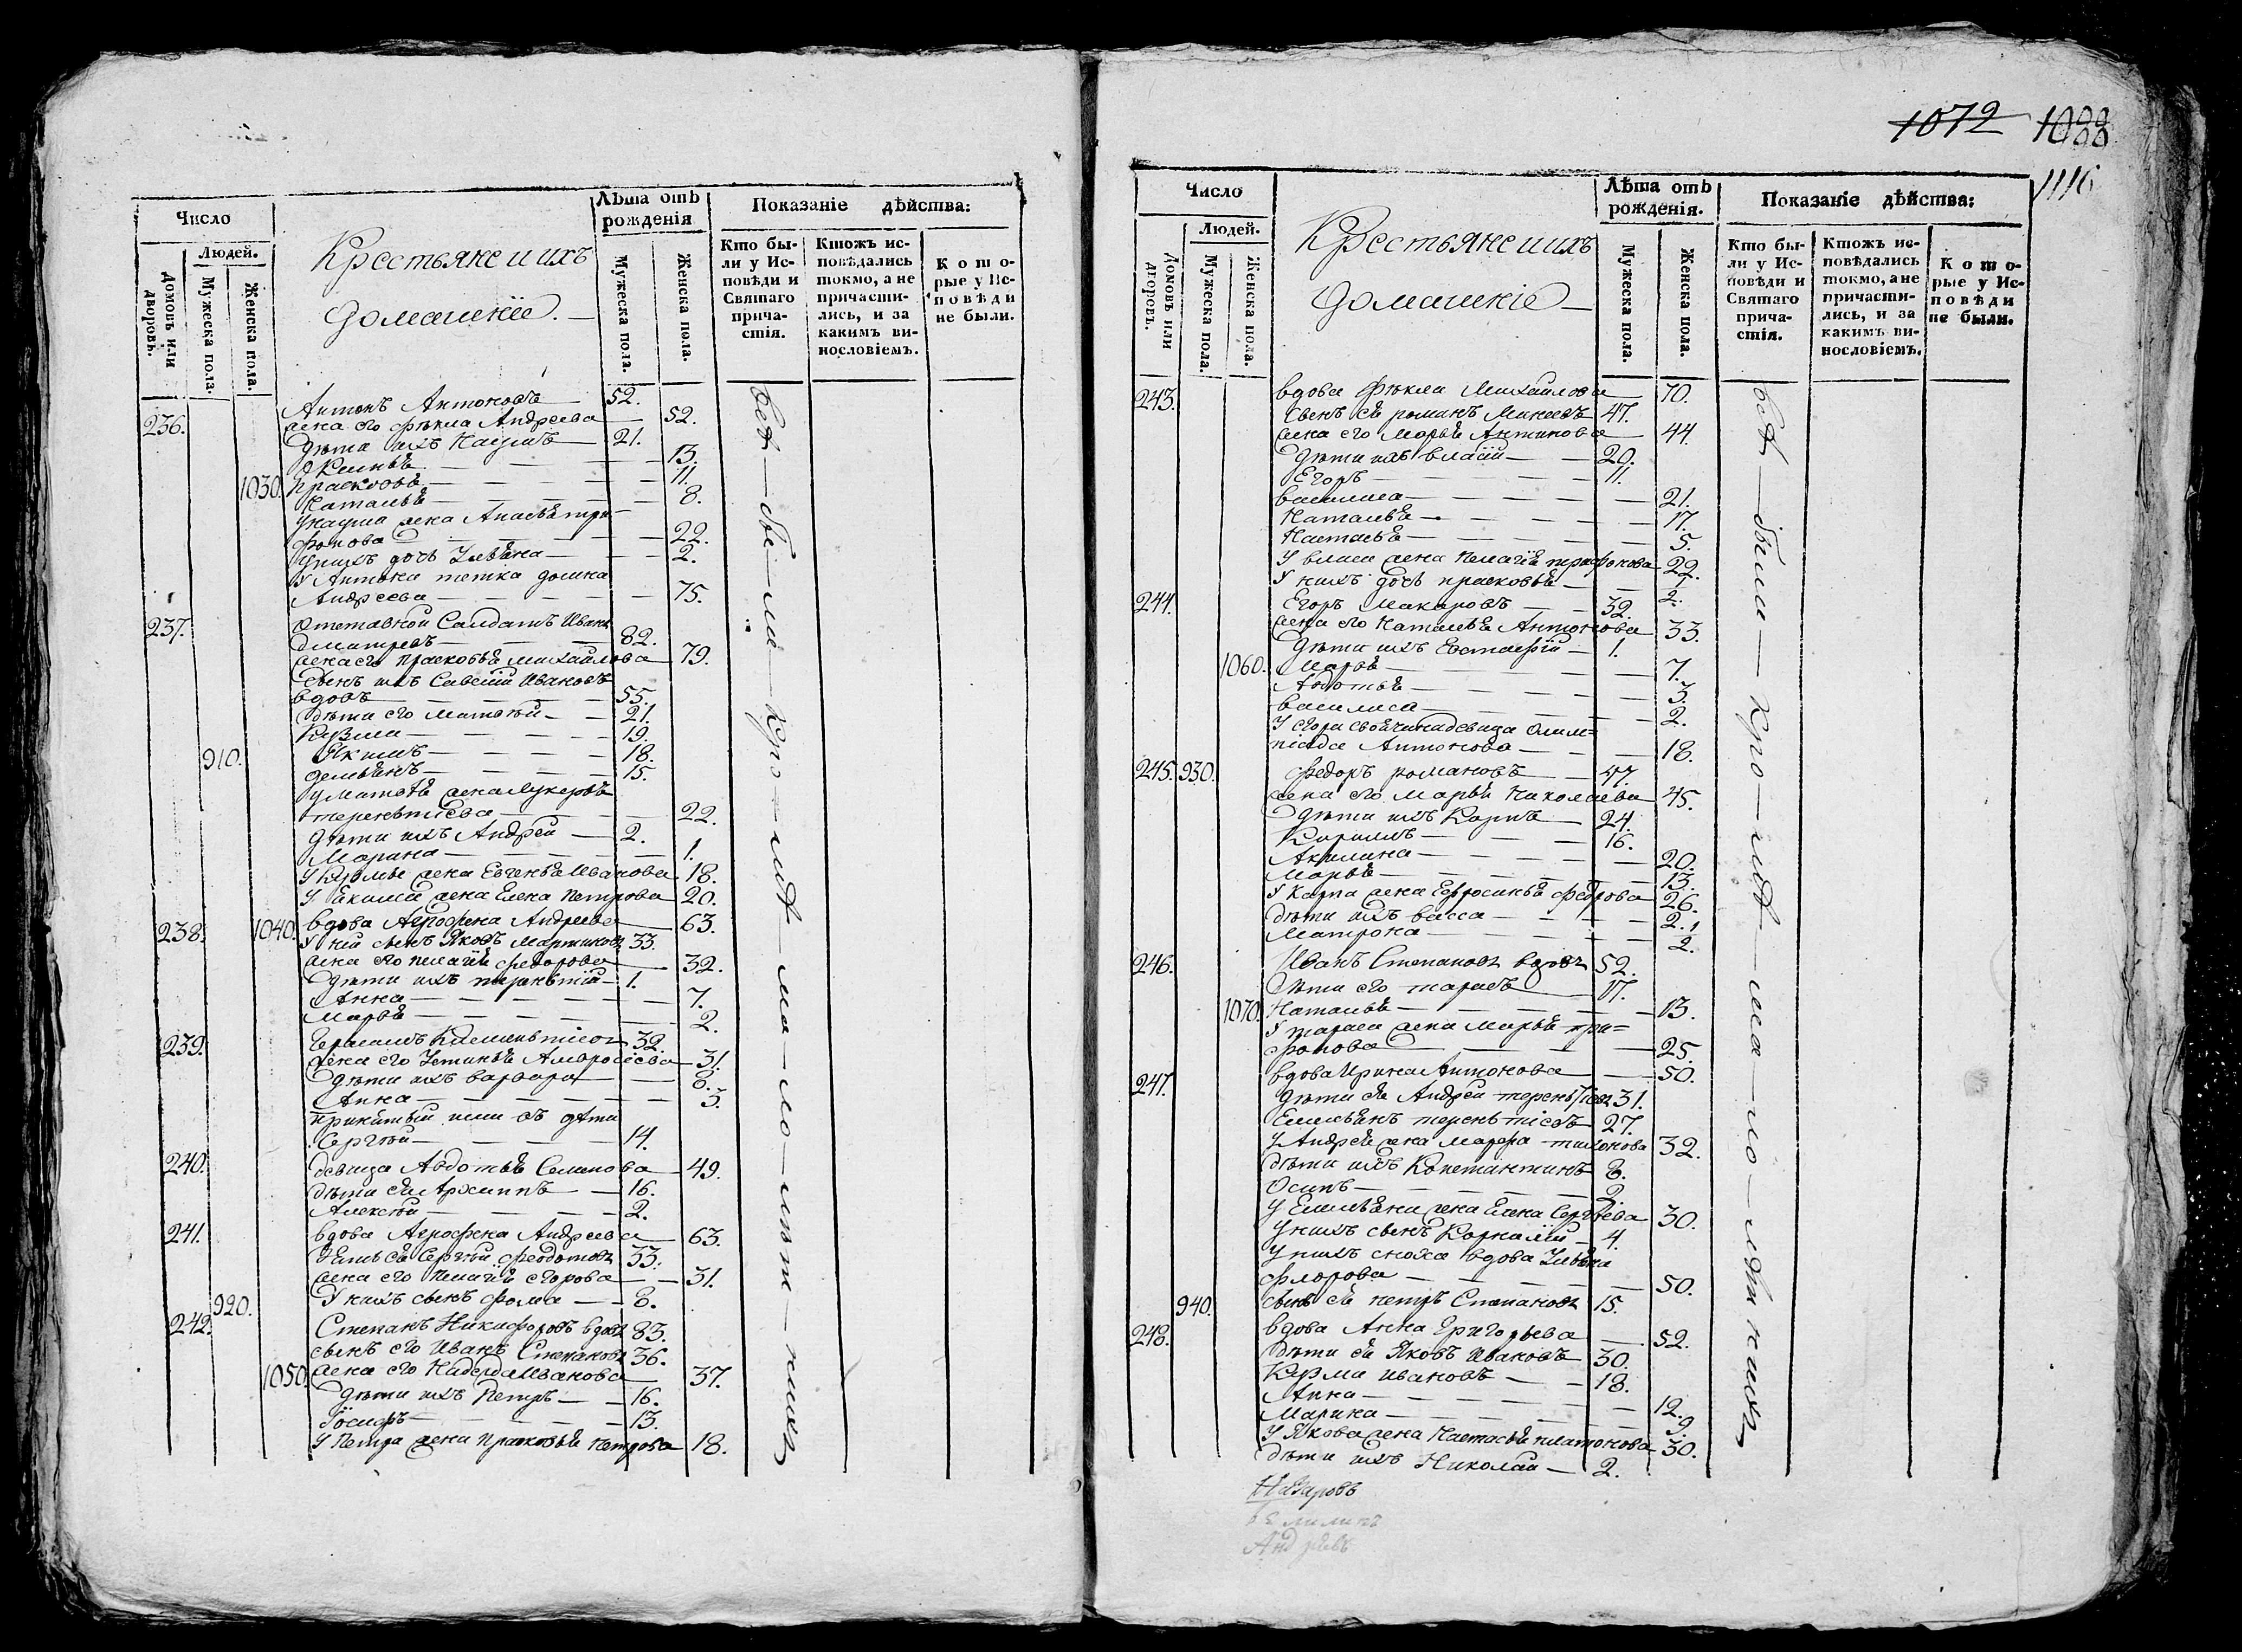 Число
Людей.
Домовъ или дворовъ.
Мужеска пола.
Женска пола.
Крестьяне и ихъ
домашніе.
Лѣта отъ рожденія
Мужеска пола.
Женска пола.
Показаніе дѣйства:
Кто бы-
ли у Ис-
повѣди и
Святаго
прича-
стія.
Ктожъ ис-
повѣдались
токмо, а не
причасти-
лись, и за
какимъ ви-
нословіемъ.
Кото-
рые у Ис-
повѣди
не были.
Антонъ Антоновъ 52.
236. жена его Фекла Андреева 52.
дѣти ихъ Наумъ 21.
13.
1030. Прасковья 11.
Наталья 8.
у Наума жена Анасья три-
фонова 22.
у нихъ дочь Ульяна 2.
у Антона тетка домна
Андреева 75.
237. Отставной Салдатъ Иванъ
Дмитревъ 82.
жена его Прасковья Михайлова 79.
сынъ ихъ Савелій Ивановъ
вдовъ 55.
дѣти его Матвѣй 21.
Кузма 19.
910. Якимъ 18.
Демьянъ 15.
у Матвѣя жена Лукерья
терентіева 22.
дѣти ихъ Андрей 2.
Марина 1.
у Кузмы жена Евгенья Иванова 18.
у Екима жена Елена Петрова 20.
238. 1040. вдова Агрофена Андреева 63.
у ней сынъ Яковъ Мартиновъ 33.
жена его Пелагія Федорова 32.
дѣти ихъ терентій 1.
Анна 7.
Марья 2.
239. Герасимъ Клементіевъ 32.
жена его Устинья Амвросіева 31.
дѣти ихъ варвара 8.
Анна 3.
принятый ими въ дѣти
Сергѣй 14.
240. девица Авдотья Семенова 49.
дѣти ея Архиппъ 16.
Алексѣй 2.
241. вдова Агрофена Андреева 63.
зять ея Сергѣй Федотовъ 33.
жена его Пелагія Егорова 31.
920. у нихъ сынъ Фома 8.
242. Степанъ Никифоровъ вдовъ 83.
сынъ его Иванъ Степановъ 36.
1050. жена его Надежда Иванова 37.
дѣти ихъ Петръ 16.
Іосифъ 13.
у Петра жена Прасковья Петрова 18.
всѣ — бы — ли — кро — мѣ — ма — ло — лѣт — нихъ
1072 1088
1116
Число
Людей.
Домовъ или дворовъ.
Мужеска пола.
Женска пола.
Крестьяне и ихъ
домашніе
Лѣта отъ рожденія.
Мужеска пола.
Женска пола.
Показаніе дѣйства:
Кто бы-
ли у Ис-
повѣди и
Святаго
прича-
стія.
Ктожъ ис-
повѣдались
токмо, а не
причасти-
лись, и за
какимъ ви-
нословіемъ.
Кото-
рые у Ис-
повѣди
не были.
243. вдова Фекла Михайлова 70.
сынъ ея романъ Макеевъ 47.
жена его Марья Антипова 44.
дѣти ихъ власій 20.
Егоръ 11.
василиса 21.
Наталья 17.
Настасья 5.
у власа жена Пелагія трифонова 22.
у нихъ дочь прасковья 2.
244. Егоръ Макаровъ 32.
жена его Наталья Антонова 33.
дѣти ихъ Евстафій 1.
1060. Марья 7.
Авдотья 3.
василиса 2.
у егора своячина девица Олим=
піада Антонова 18.
245. 930. Федоръ романовъ 47.
жена его Марья Николаева 45.
дѣти ихъ Карпъ 24.
16.
Акилина 20.
Марья 13.
у Карпа жена Ефросинья Федорова 26.
дѣти ихъ васса 2.
Матрона 2.
246. Иванъ Степановъ вдовъ 52.
дѣти его тарасъ 17.
1070. Наталья 13.
у тараса жена Марья три=
фонова 25.
247. вдова Ирина Антонова 50.
дѣти ея Андрей терентіевъ 31.
Емельянъ терентіевъ 27.
у Андрея жена Марфа тихонова 32.
дѣти ихъ Константинъ 8.
Осипъ 2.
у Емельяна жена Елена Сергѣева 30.
у нихъ сынъ Корнилій 4.
у нихъ сноха вдова Ульяна
флорова 50.
940. сынъ ея петръ Степановъ 15.
248. вдова Анна Григорьева 52.
дѣти ея Яковъ Ивановъ 30.
Кузма ивановъ 18.
Анна 12.
Марина 9.
у Якова жена Настасья платонова 30.
дѣти ихъ Николай 2.
всѣ — были — кро — мѣ — ма — ло — лѣт нихъ
Назаровъ